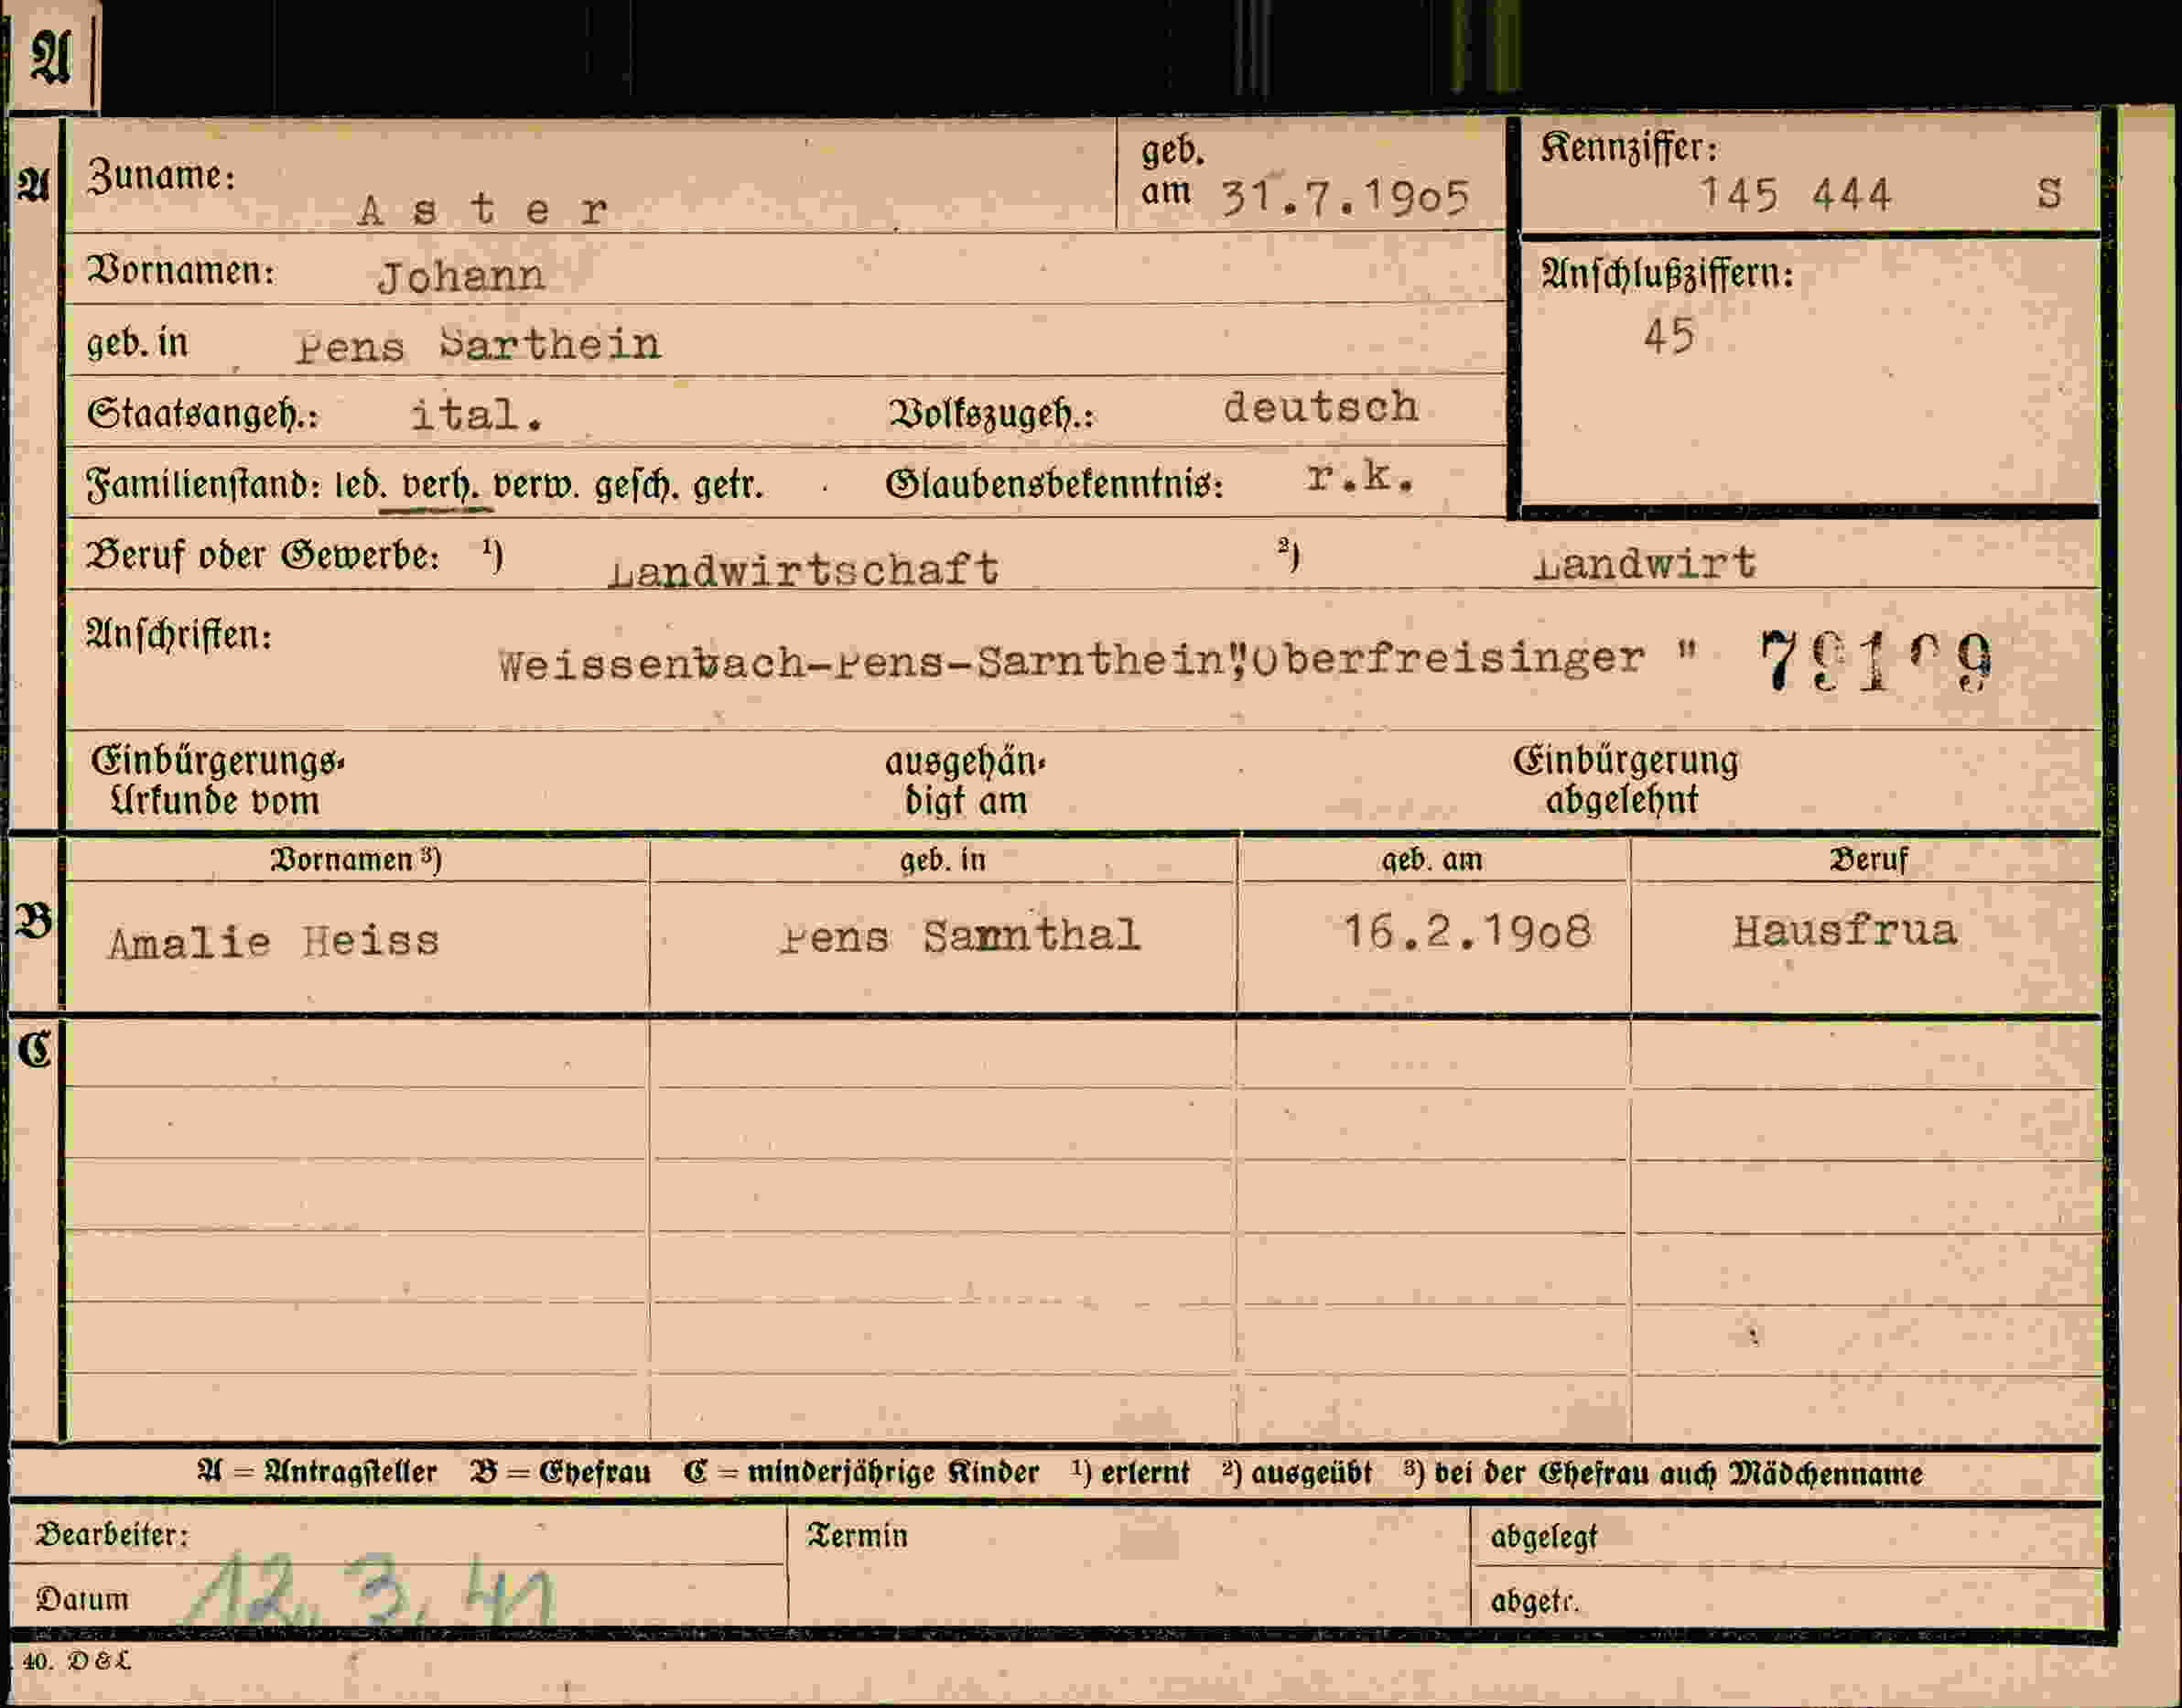 A
A
Zuname: Aster
geb. am 31.7.1905
Kennziffer: 145 444 S
Vornamen: Johann
Anschlußziffern: 45
geb. in Pens Sarthein
Staatsangeh.: ital. Volkszugeh.: deutsch
Familienstand: led. verh. verw. gesch. getr. Glaubensbekenntnis: r.k.
Beruf oder Gewerbe: ¹) Landwirtschaft ²) Landwirt
Anschriften: Weissenbach-Pens-Sarnthein,"Oberfreisinger "
Einbürgerungs-Urkunde vom ausgehändigt am Einbürgerung abgelehnt
Vornamen ³) geb. in geb. am Beruf
B Amalie Heiss Pens Sarnthal 16.2.1908 Hausfrua
C
A = Antragsteller B = Ehefrau C = minderjährige Kinder ¹) erlernt ²) ausgeübt ³) bei der Ehefrau auch Mädchenname
Bearbeiter: Termin abgelegt
Datum 12. 3. 41 abgetr.
40. D & L